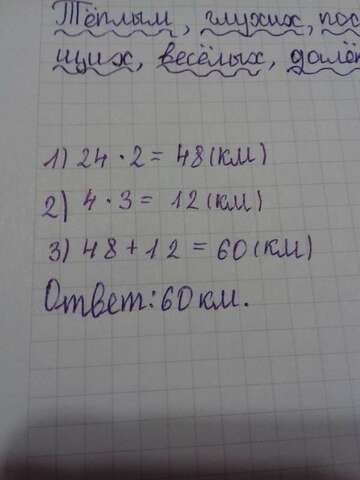 Тёплым, глухих, пох
щих, весёлых, далёк
1) 24 · 2 = 48 (км)
2) 4 · 3 = 12 (км)
3) 48 + 12 = 60 (км)
Ответ: 60 км.